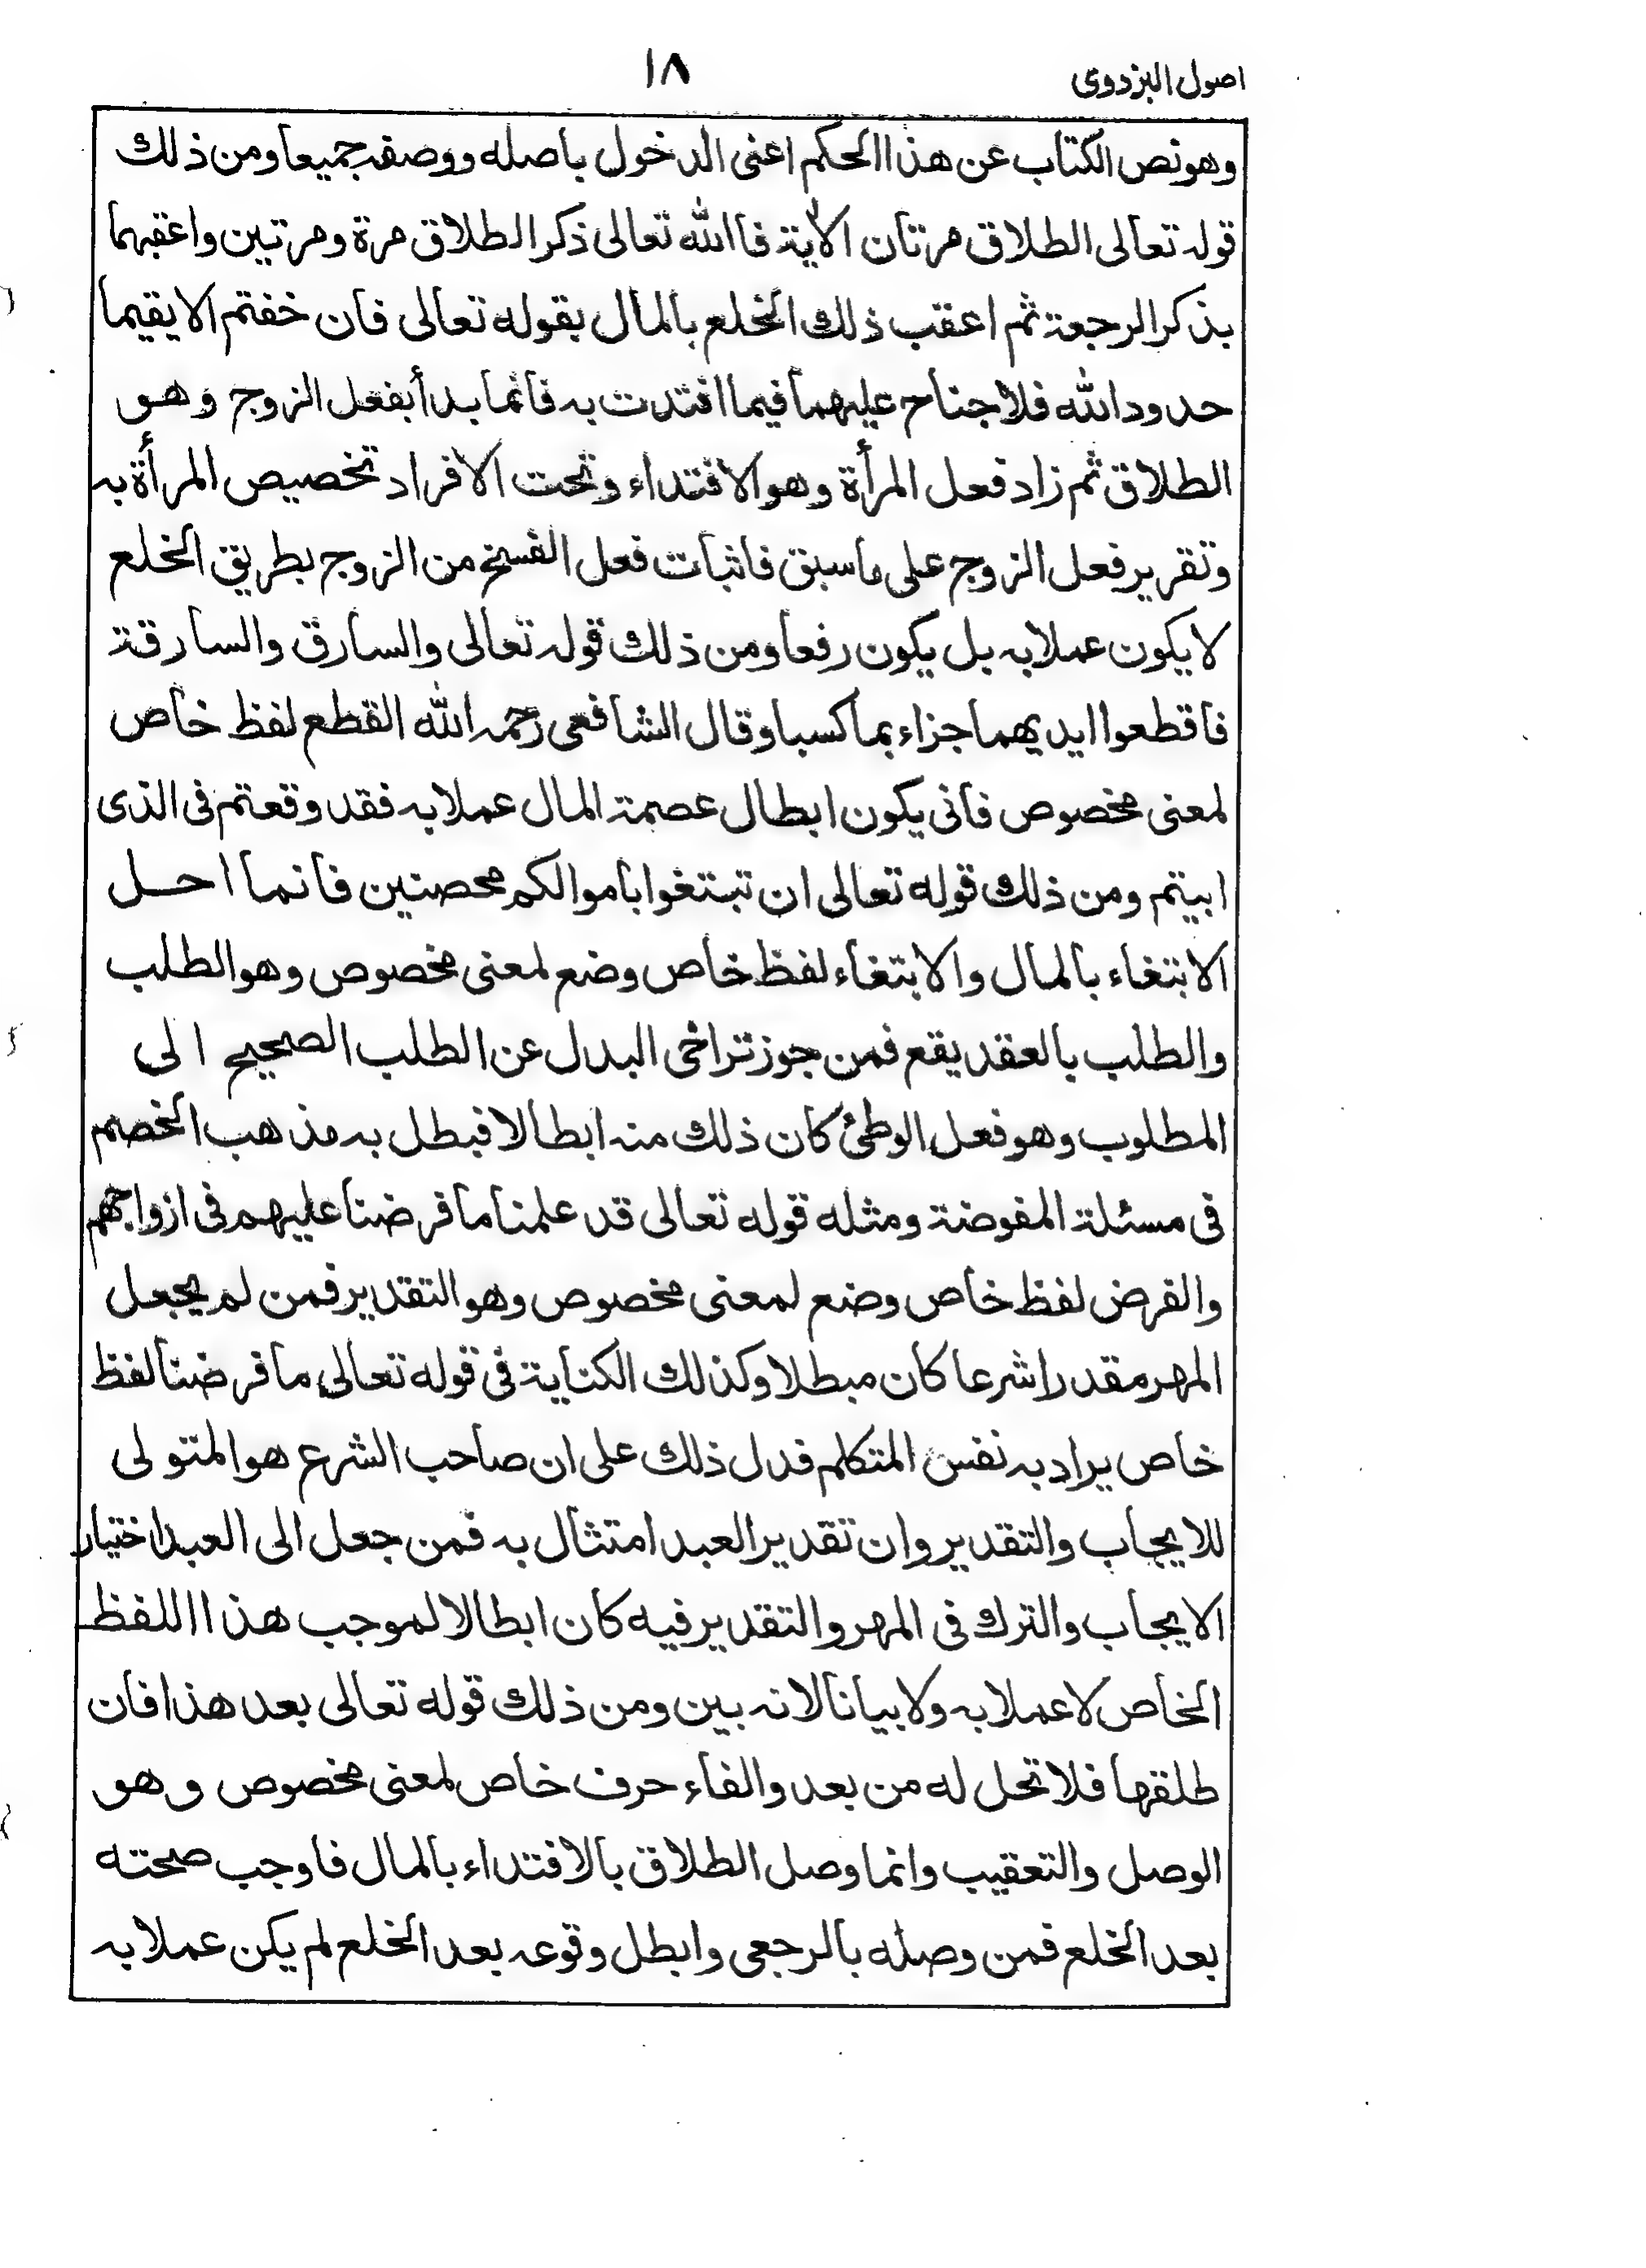 اصول البزدوى
١٨
وهو نص الكتاب عن هذا الحكم اعنى الدخول باصله ووصفه جميعا ومن ذلك
قوله تعالى الطلاق مرتان الاية فاالله تعالى ذكر الطلاق مرة ومرتين واعقبهما
بذكر الرجعة ثم اعقب ذلك الخلع بالمال بقوله تعالى فان خفتم الا يقيما
حدود الله فلا جناح عليهما فيما افتدت به فانما بدأ بفعل الزوج وهو
الطلاق ثم زاد فعل المرأة وهو الافتداء وتحت الافراد تخصيص المرأة به
وتقرير فعل الزوج على ما سبق فاثبات فعل الفسخ من الزوج بطريق الخلع
لا يكون عملا به بل يكون رفعا ومن ذلك قوله تعالى والسارق والسارقة
فاقطعوا ايديهما جزاء بما كسبا وقال الشافعى رحمه الله القطع لفظ خاص
لمعنى مخصوص فانى يكون ابطال عصمة المال عملا به فقد وقعتم فى الذى
ابيتم ومن ذلك قوله تعالى ان تبتغوا باموالكم محصنين فانما احل
الابتغاء بالمال والابتغاء لفظ خاص وضع لمعنى مخصوص وهو الطلب
والطلب بالعقد يقع فمن جوز تراخى البدل عن الطلب الصحيح الى
المطلوب وهو فعل الوطئ كان ذلك منه ابطالا فبطل به مذهب الخصم
فى مسئلة المفوضة ومثله قوله تعالى قد علمنا ما فرضنا عليهم فى ازواجهم
والفرض لفظ خاص وضع لمعنى مخصوص وهو التقدير فمن لم يجعل
المهر مقدرا شرعا كان مبطلا وكذلك الكناية فى قوله تعالى ما فرضنا لفظ
خاص يراد به نفس المتكلم فدل ذلك على ان صاحب الشرع هو المتولى
للايجاب والتقدير وان تقدير العبد امتثال به فمن جعل الى العبد اختيار
الايجاب والترك فى المهر والتقدير فيه كان ابطالا لموجب هذا اللفظ
الخاص لا عملا به ولا بيانا لانه بين ومن ذلك قوله تعالى بعد هذا فان
طلقها فلا تحل له من بعد والفاء حرف خاص لمعنى مخصوص وهو
الوصل والتعقيب وانما وصل الطلاق بالافتداء بالمال فاوجب صحته
بعد الخلع فمن وصله بالرجعى وابطل وقوعه بعد الخلع لم يكن عملا به